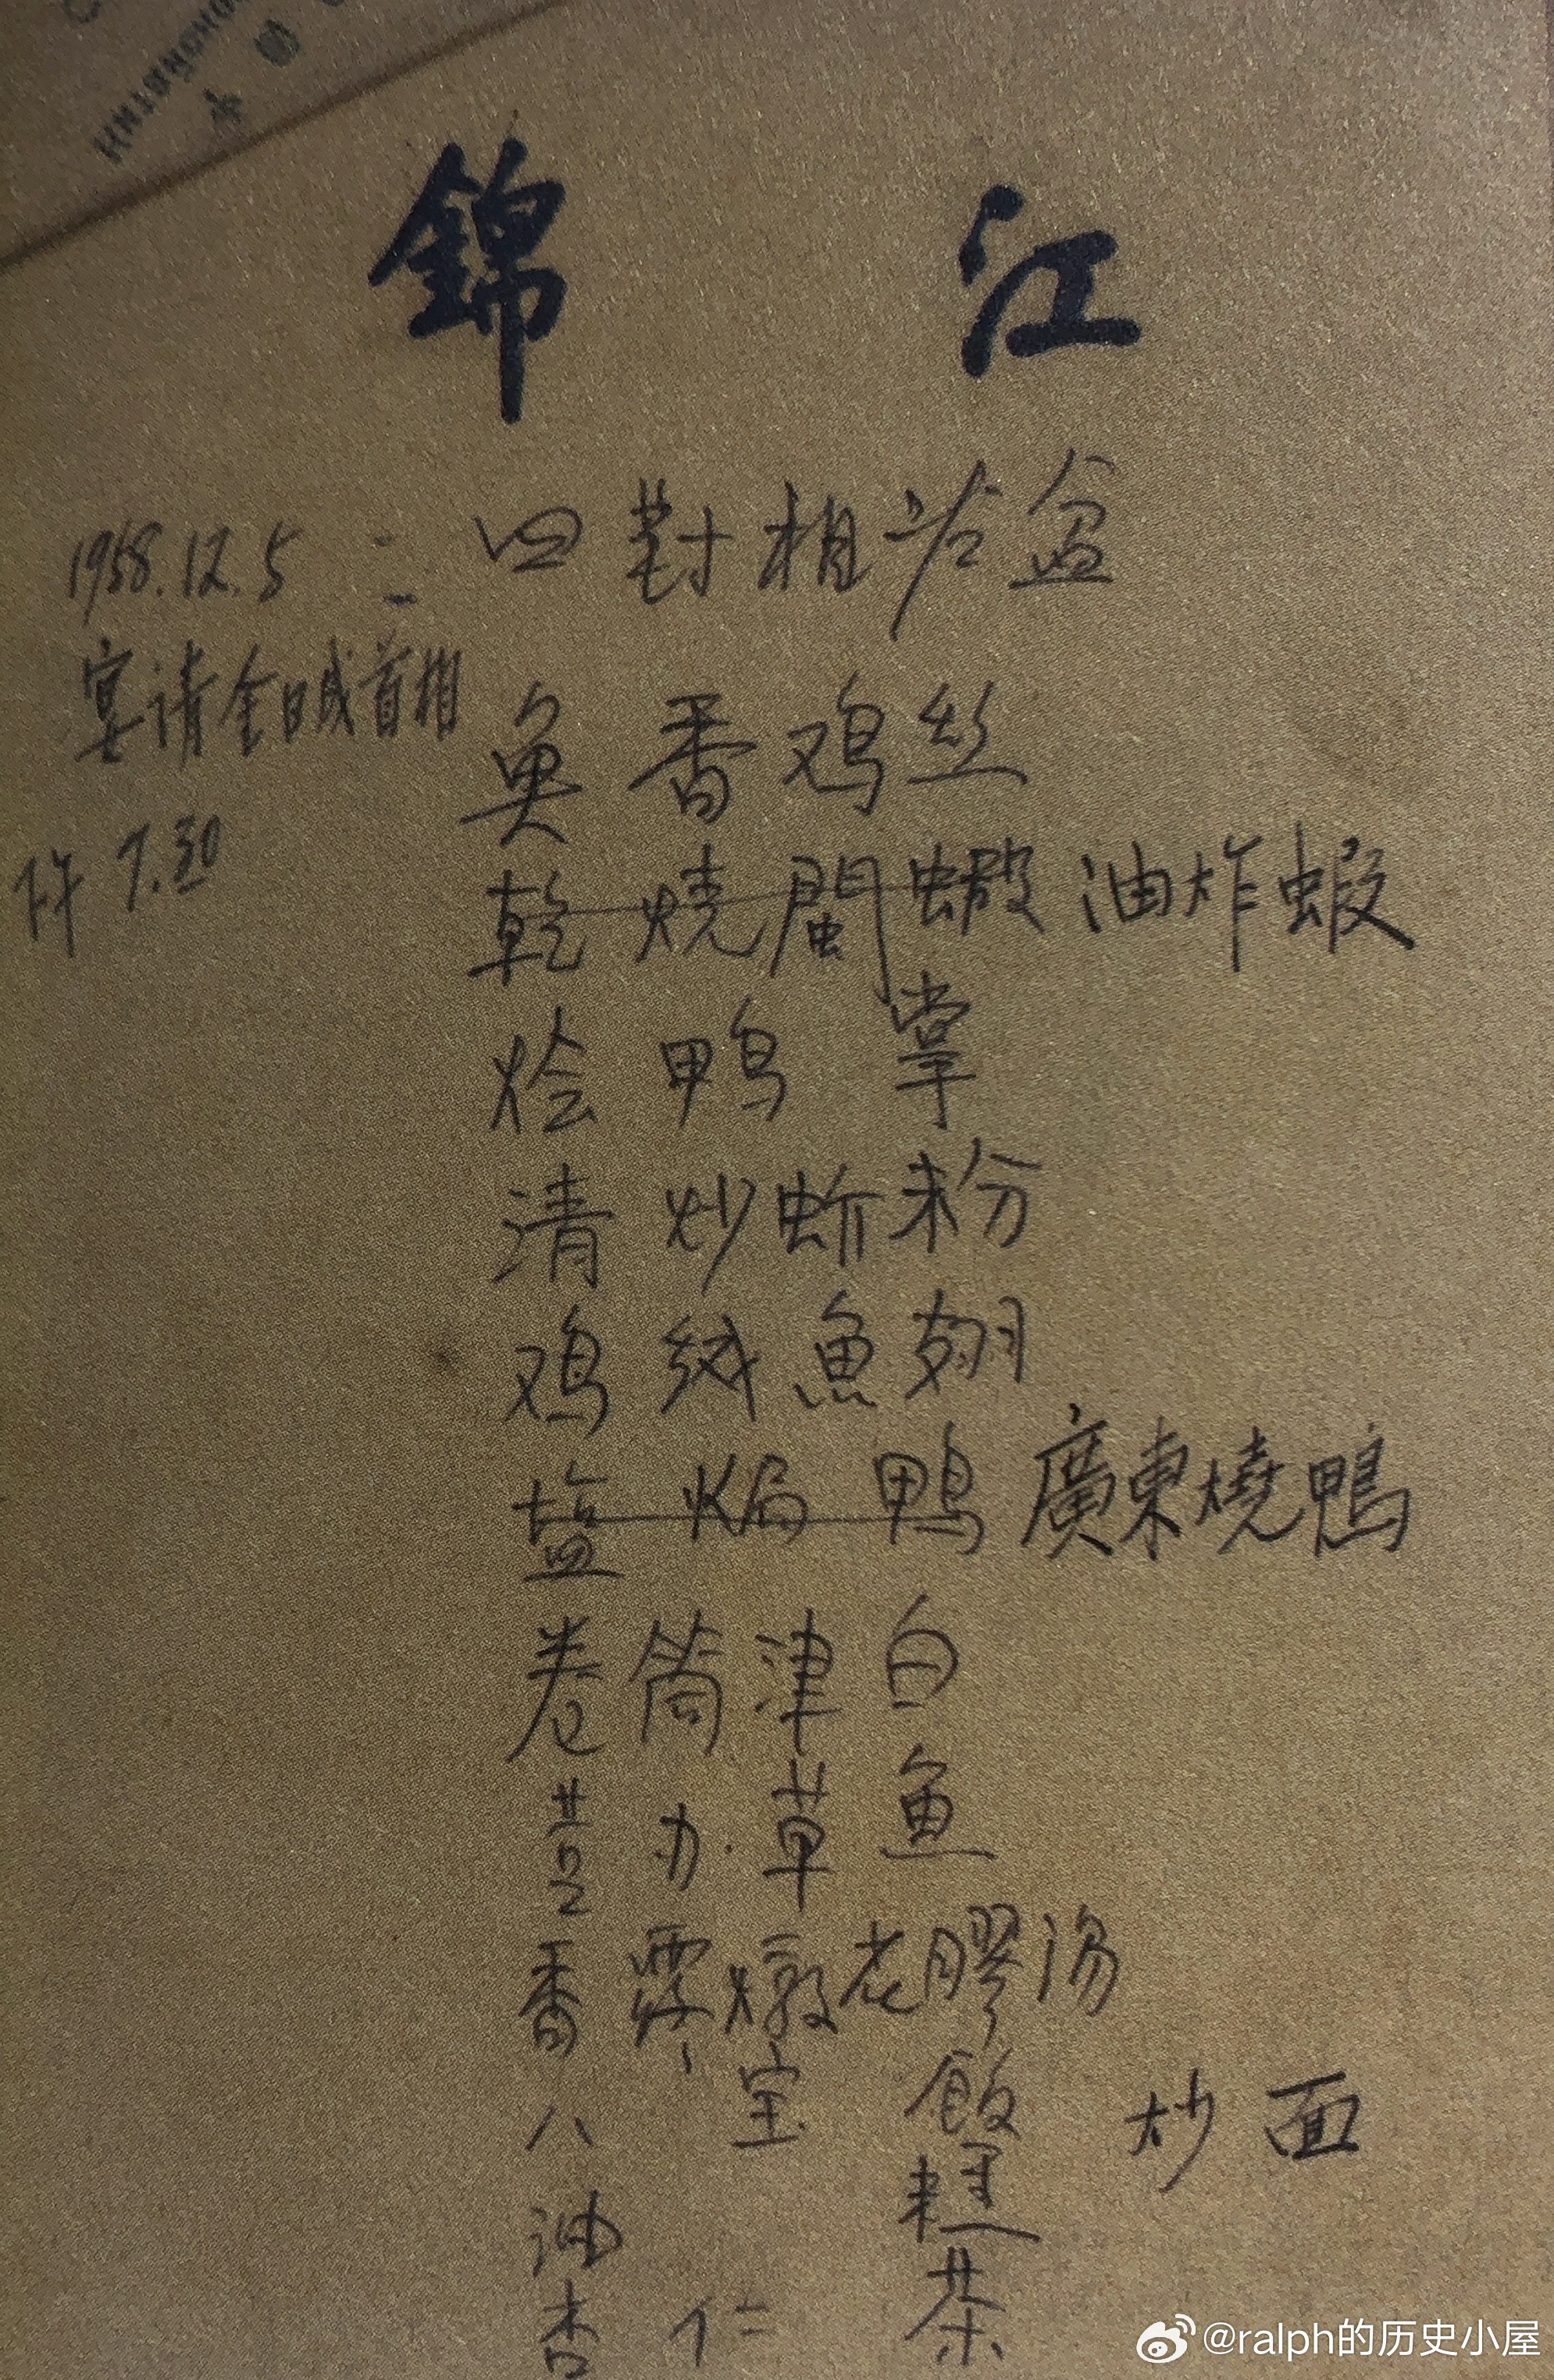 錦 江
1958.12.5 二
宴请金日成首相
下午 7.30
四對相冷盆
魚香鸡丝
乾燒閩蝦 油炸蝦
烩鸭掌
清炒蚧粉
鸡绒魚翅
塩焗鴨 廣東燒鴨
卷筒津白
草魚
香 燉花膠汤
八宝飯 炒面
油 糕
杏仁茶
@ralph的历史小屋